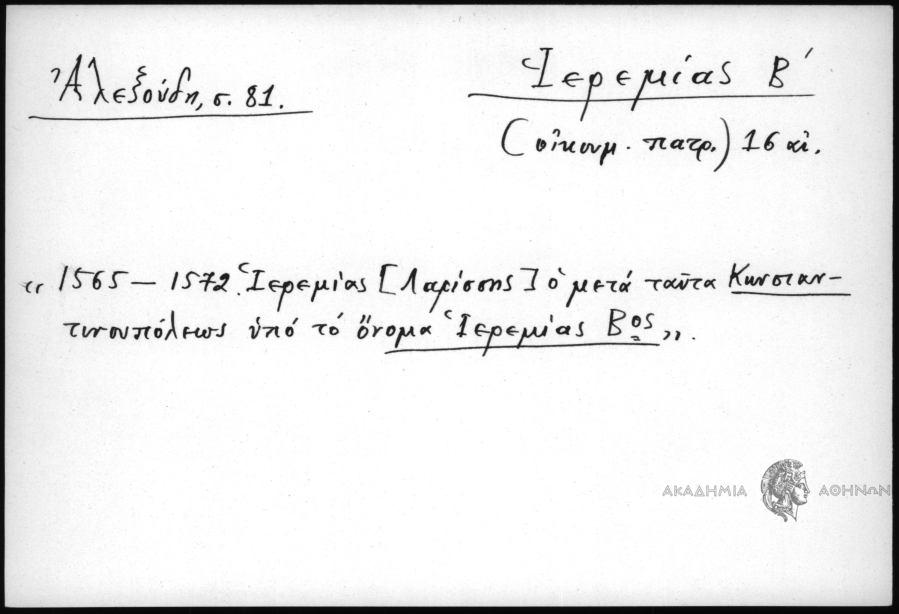 Ἀλεξούδη, σ. 81.
Ἱερεμίας Β΄
(οἰκουμ. πατρ.) 16 αἰ.
“ 1565 – 1572. Ἱερεμίας [Λαρίσσης] ὁ μετά ταῦτα Κωνσταν-
τινουπόλεως ὑπό τό ὄνομα Ἱερεμίας Βος „.
ΑΚΑΔΗΜΙΑ ΑΘΗΝΩΝ